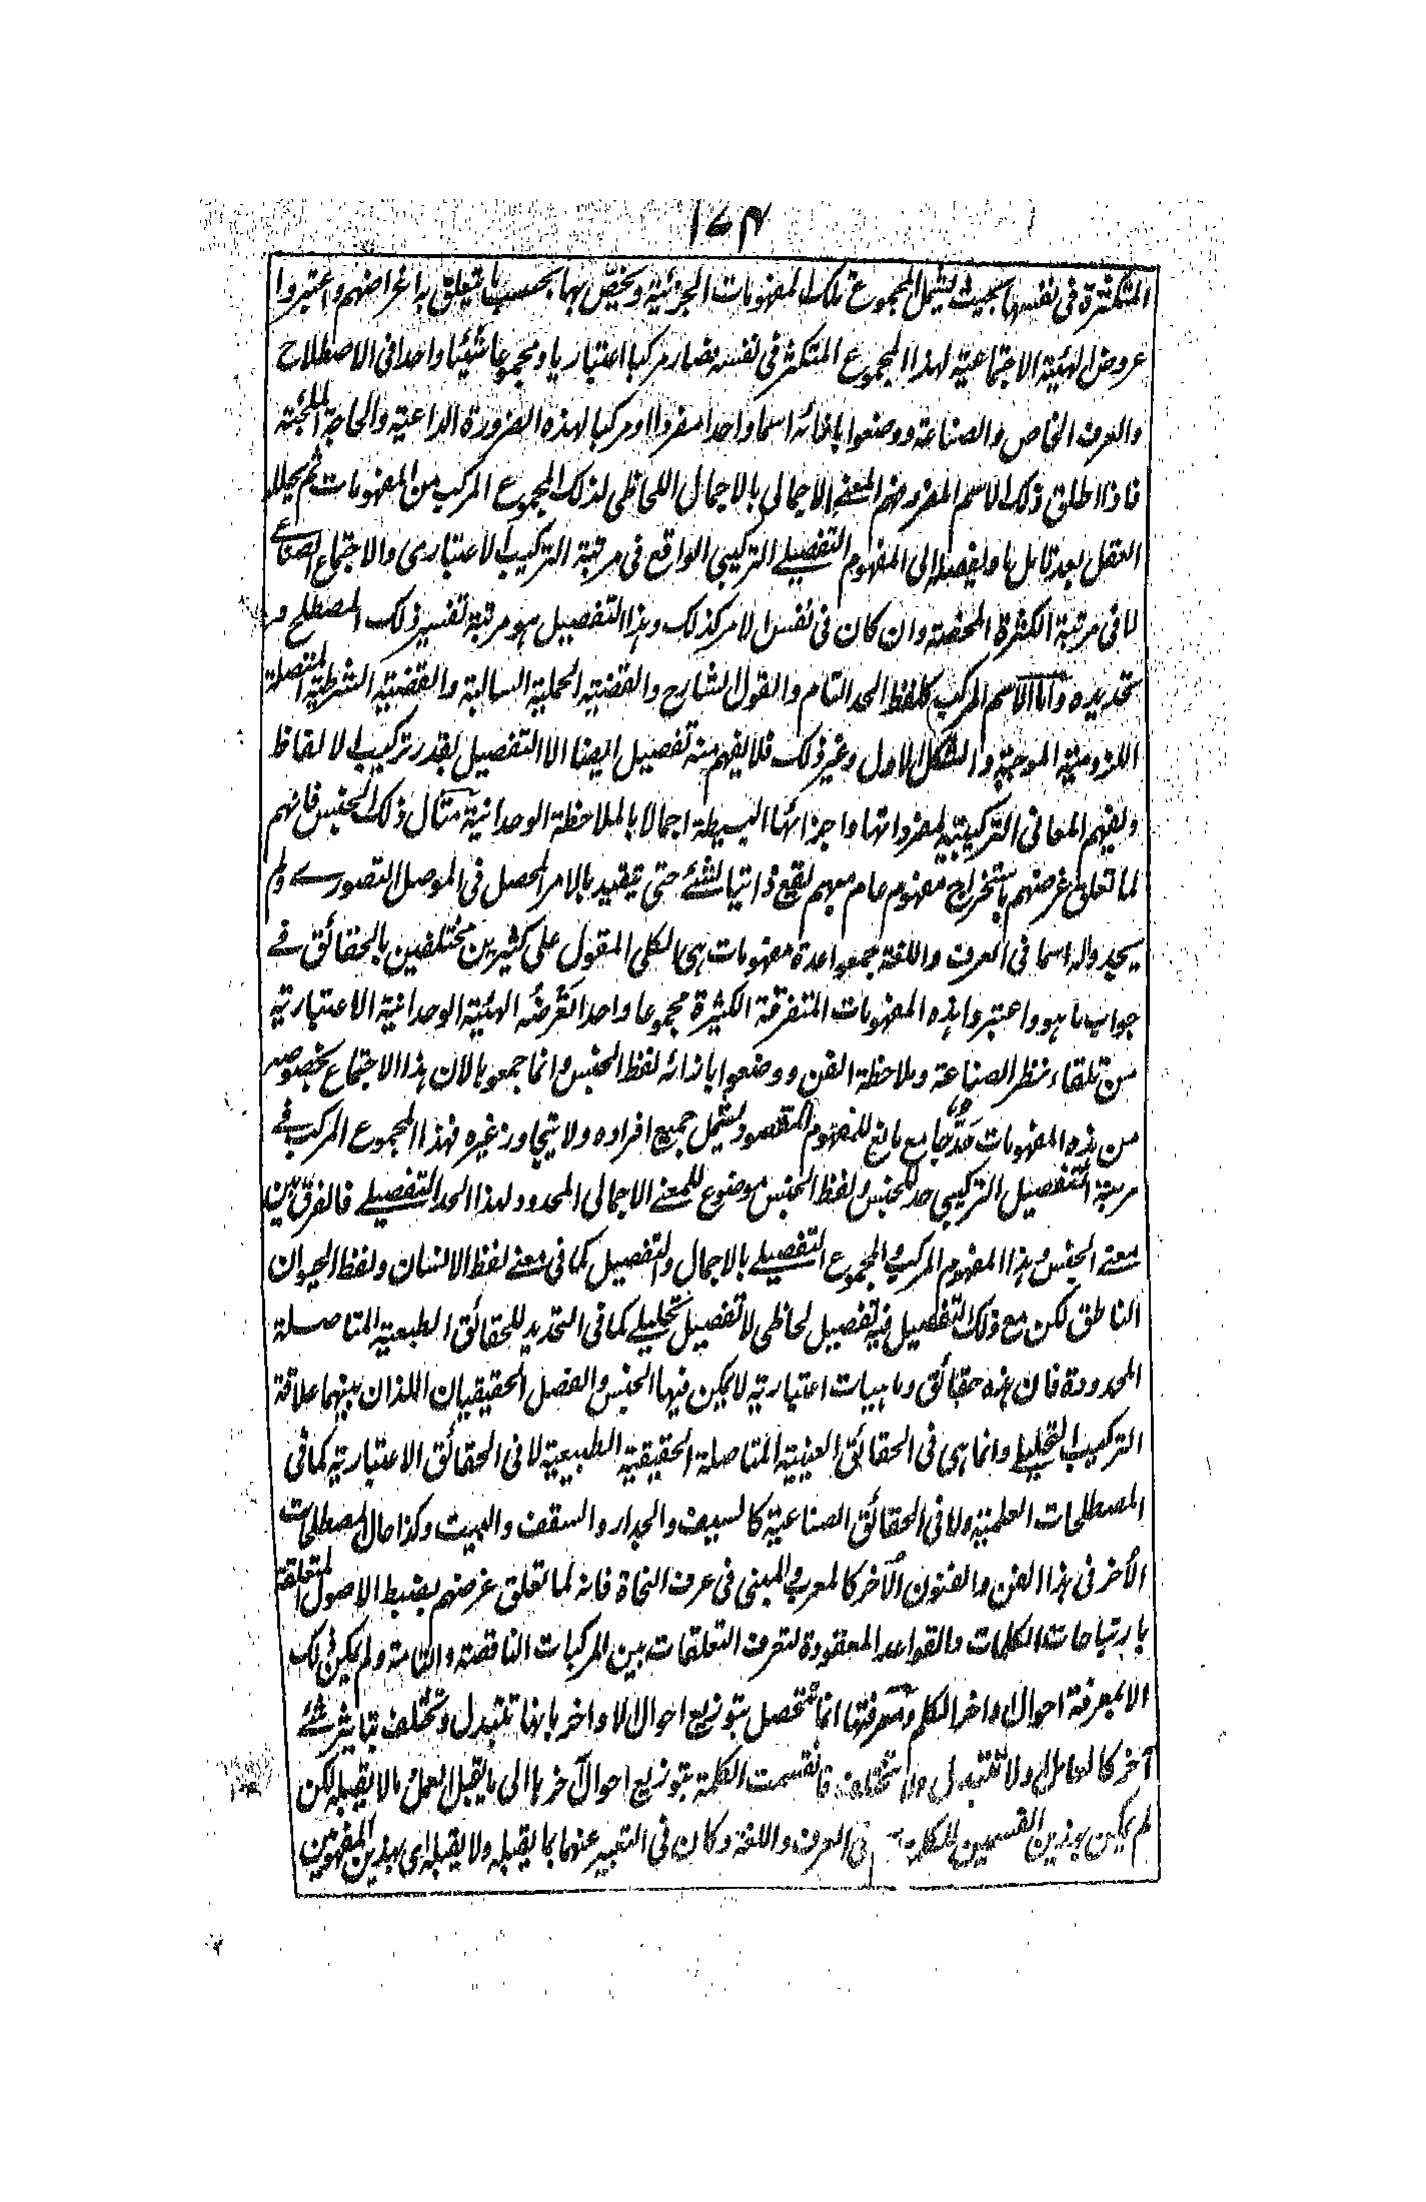 ١٧٤
المتكثرة فى نفسها بحيث ليشمل المجموع تلك المفهومات الجزئية ويخص بها بحسب ما يتعلق به اغراضهم واعتبروا
عروض الهيئة الاجتماعية لهذا المجموع المتكثر فى نفسه فصار مركبا اعتباريا ومجموعا شيئا واحدا فى الاصطلاح
والعرف الخاص والصناعة ووضعوا بازائه اسما واحدا مفردا او مركبا لهذه الضرورة الداعية والحاجة الملجئة
فاذا اطلق ذلك الاسم المفرد فهم المعنى الاجمالى بالاجمال اللحاظى لذلك المجموع المركب من المفهومات ثم يحلل
العقل بعد تامل ما ويفصله الى المفهوم التفصيلے التركيبى الواقع فى مرتبة التركيب الاعتبارى والاجتماع الصناعے
لا فى مرتبة الكثرة المحضة وان كان فى نفس الامر كذلك وهذا التفصيل هو مرتبة تفسير ذلك المصطلح و
تحديده واما الاسم المركب كلفظ الحد التام والقول الشارح والقضية الحملية السالبة والقضية الشرطية المتصلة
اللزومية الموجبة والشكل الاول وغير ذلك فلا يفهم منه تفصيل ايضا الا التفصيل بقدر تركيب الالفاظ
ويفهم المعانى التركيبية لمفرداتها واجزائها البسيطة اجمالا بالملاحظة الوحدانية مثال ذلك الجنس فانهم
لما تعلق غرضهم باستخراج مفهوم عام مبهم يقع ذاتيا لشئ حتى يقيد بالامر المحصل فى الموصل التصورے ولم
يجدوا له اسما فى العرف واللغة جمعوا عدة مفهومات هى الكلى المقول على كثيرين مختلفين بالحقائق فے
جواب ما هو واعتبروا هذه المفهومات المتفرقة الكثيرة مجموعا واحدا تعرضه الهيئة الوحدانية الاعتبارية
من تلقاء نظر الصناعة وملاحظة الفن ووضعوا بازائه لفظ الجنس وانما جمعوها لان هذا الاجتماع بخصوصه
من هذه المفهومات حد جامع مانع للمفهوم المقصود يشمل جميع افراده ولا يتجاوز غيره فهذا المجموع المركب فے
مرتبة التفصيل التركيبى حد للجنس ولفظ الجنس موضوع للمعنے الاجمالى المحدود لهذا الحد التفصيلے فالفرق بين
معنے الجنس وهذا المفهوم المركب والمجموع التفصيلے بالاجمال والتفصيل كما فى معنے لفظ الانسان ولفظ الحيوان
الناطق لكن مع ذلك التفصيل فيه تفصيل لحاظى لا تفصيل تحليلے كما فى التحديد للحقائق الطبعية المتاصلة
المحدودة فان هذه حقائق وماهيات اعتبارية لا يمكن فيها الجنس والفصل الحقيقيان اللذان بينهما علاقة
التركيب التحليلے وانما هى فى الحقائق العينية المتاصلة الحقيقية الطبيعية لا فى الحقائق الاعتبارية كما فى
المصطلحات العلمية ولا فى الحقائق الصناعية كالسيف والجدار والسقف والبيت وكذا حال المصطلحات
الأخر فى هذا الفن والفنون الأخر كالمعرب والمبنى فى عرف النحاة فانه لما تعلق غرضهم بضبط الاصول المتعلقة
بارتباطات الكلمات والقواعد المعقودة لتعرف التعلقات بين المركبات الناقصة والتامة ولم يكن ذلك
الا بمعرفة احوال اواخر الكلم ومعرفتها انما تحصل بتوزيع احوال الاواخر بانها تتبدل وتختلف بتاثير شئے
آخر كالعامل او لا تتبدل ولا تختلف فانقسمت الكلمة بتوزيع احوال آخرها الى ما يقبل العمل وما لا يقبله لكن
لم يكن بهذين القسمين للكلمة فى العرف واللغة وكان فى التعبير عنهما بما يقبله ولا يقبله اى بهذين المفهومين